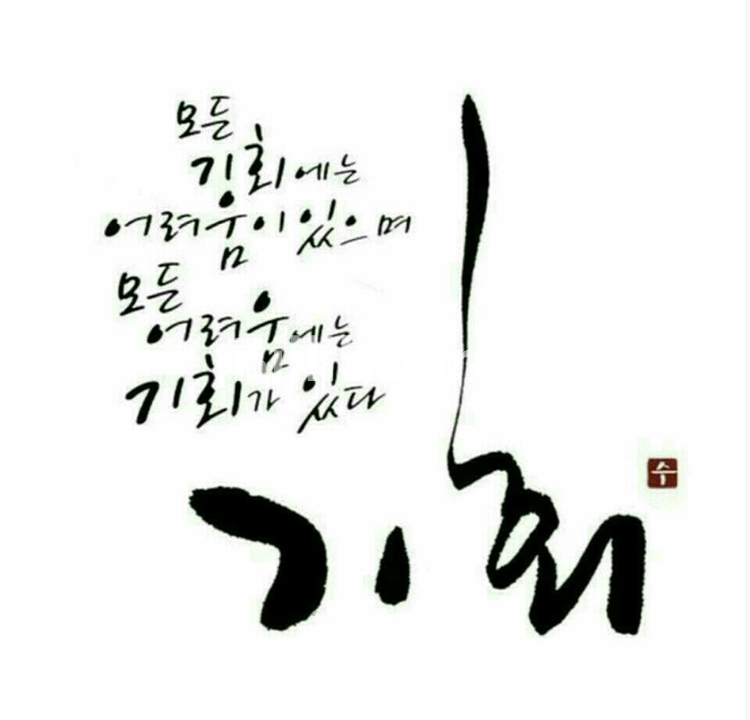 모든
기회에는
어려움이 있으며
모든
어려움에는
기회가 있다
기회
수